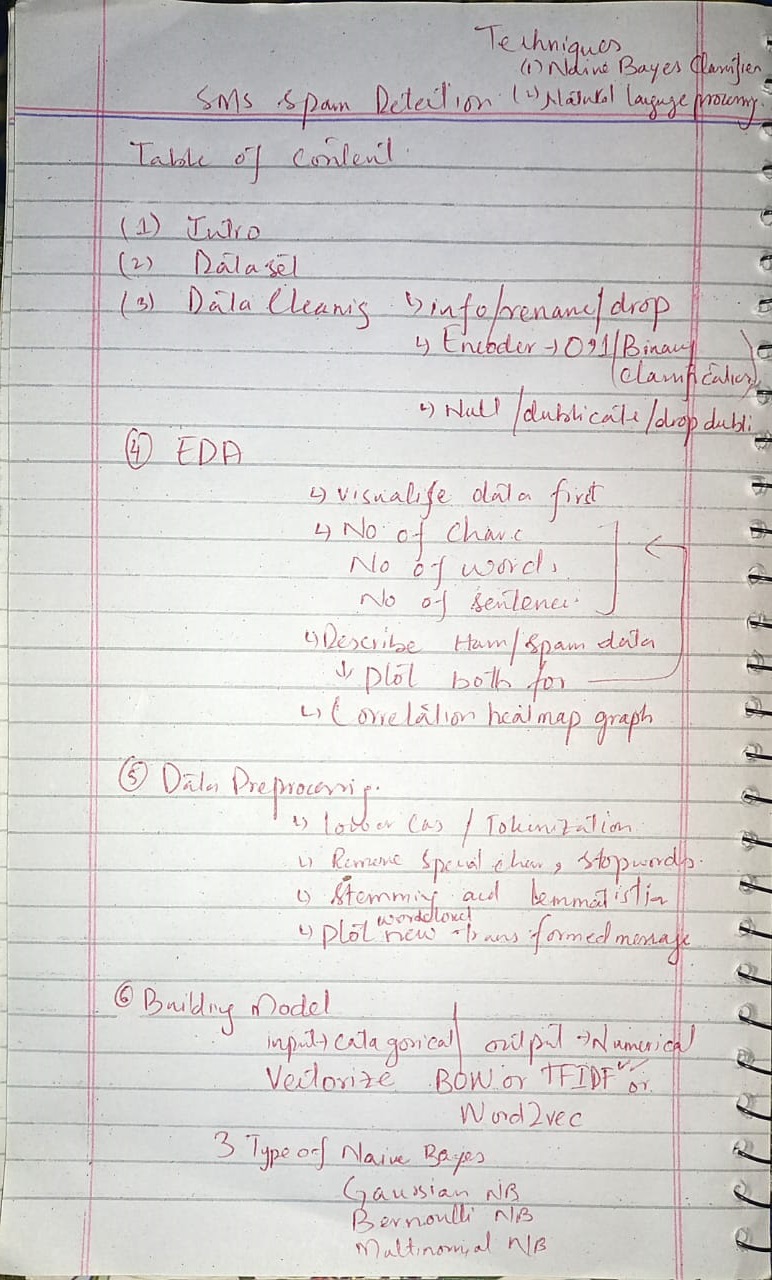 Techniques
(1) Naive Bayes Classifier
SMS Spam Detection (2) Natural laguage processing.
Table of Content.
(1) Intro
(2) Dataset
(3) Data Cleanig ↳ info/rename/drop
↳ Encoder → 0,1/Binary
(Classification)
↳ Null/dublicate/drop dubli
④ EDA
↳ visualise data first
↳ No of Charc
No of words
No of sentence.
↳ Describe Ham/Spam data
↓ plot both for
↳ Correlation heatmap graph
⑤ Data Preprocessing.
↳ lower Cas / Tokinization
↳ Remove Special char, stopwords.
↳ Stemming and Lemmatistin
wordcloud
↳ plot new transformed message
⑥ Building Model
input → catagorical | output → Numerical
Vectorize BOW or TFIDF ✓✓ or
Word2vec
3 Type of Naive Bayes
Gaussian NB
Bernoulli NB
Multinomial NB